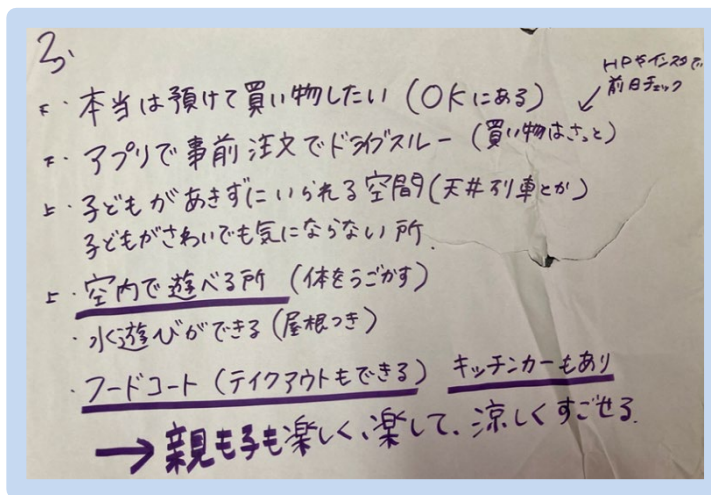 3.
HPやインスタで
前日チェック
下・本当は預けて買い物したい（OKにある）
下・アプリで事前注文でドライブスルー（買い物はさっと）
上・子どもがあきずにいられる空間（天井列車とか）
子どもがさわいでも気にならない所.
上・室内で遊べる所（体をうごかす）
・水遊びができる（屋根つき）
・フードコート（テイクアウトもできる） キッチンカーもあり
→親も子も楽しく、楽して、涼しくすごせる.